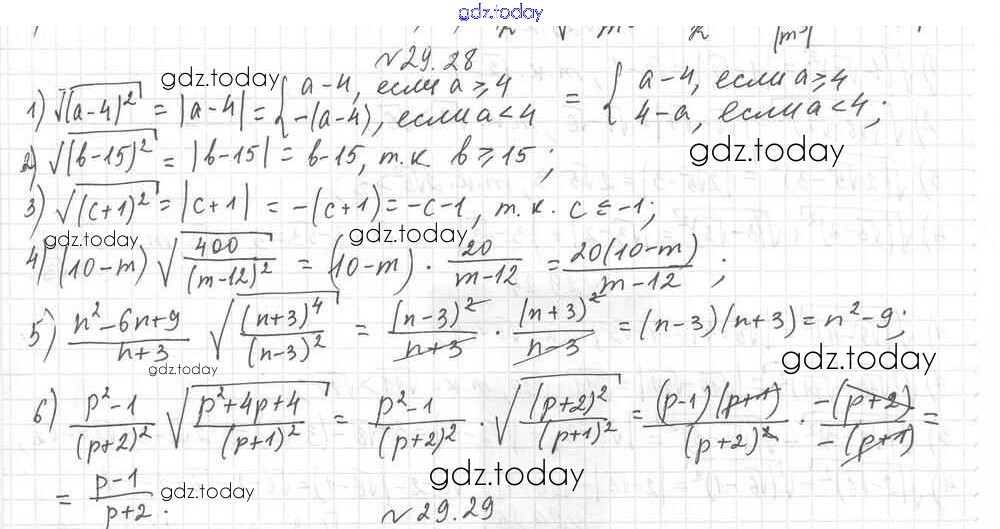 gdz.today
№29.28
gdz.today
1) √(a-4)² = |a-4| = { a-4, если a ⩾ 4 -(a-4), если a < 4 = { a-4, если a ⩾ 4 4-a, если a < 4;
gdz.today
2) √(b-15)² = |b-15| = b-15, т.к. b ⩾ 15;
3) √(c+1)² = |c+1| = -(c+1) = -c-1, т.к. c ⩽ -1;
gdz.today gdz.today
4) (10-m) √400/(m-12)² = (10-m) · 20/(m-12) = 20(10-m)/(m-12);
5) (n²-6n+9)/(n+3) √(n+3)⁴/(n-3)² = (n-3)²/(n+3) · (n+3)²/(n-3) = (n-3)(n+3) = n²-9;
gdz.today gdz.today
6) (p²-1)/(p+2)² √(p²+4p+4)/(p+1)² = (p²-1)/(p+2)² · √(p+2)²/(p+1)² = (p-1)(p+1)/(p+2)² · -(p+2)/-(p+1) =
gdz.today
= (p-1)/(p+2).
gdz.today
№29.29